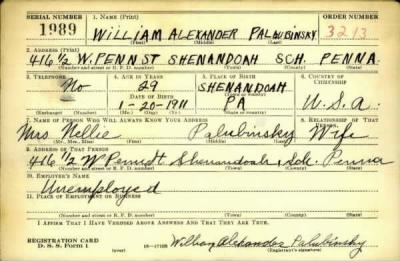 SERIAL NUMBER 1. NAME (Print) ORDER NUMBER
1989 WILLIAM ALEXANDER PALUBINSKY 3213
(First) (Middle) (Last)
2. ADDRESS (Print)
416½ W. PENN ST SHENANDOAH SCH. PENNA.
(Number and street or R. F. D. number) (Town) (County) (State)
3. TELEPHONE 4. AGE IN YEARS 5. PLACE OF BIRTH 6. COUNTRY OF CITIZENSHIP
No 29 SHENANDOAH
DATE OF BIRTH (Town or county)
1-20-1911 PA U.S.A.
(Mo.) (Day) (Yr.) (State or country)
7. NAME OF PERSON WHO WILL ALWAYS KNOW YOUR ADDRESS 8. RELATIONSHIP OF THAT PERSON
Mrs Nellie Palubinsky Wife
(Mr., Mrs., Miss) (First) (Middle) (Last)
9. ADDRESS OF THAT PERSON
416 1/2 W Penn St Shenandoah, Sch. Penna
(Number and street or R. F. D. number) (Town) (County) (State)
10. EMPLOYER'S NAME
Unemployed
11. PLACE OF EMPLOYMENT OR BUSINESS
(Number and street or R. F. D. number) (Town) (County) (State)
I AFFIRM THAT I HAVE VERIFIED ABOVE ANSWERS AND THAT THEY ARE TRUE.
REGISTRATION CARD
D. S. S. Form 1 William Alexander Palubinsky
(Registrant's signature)